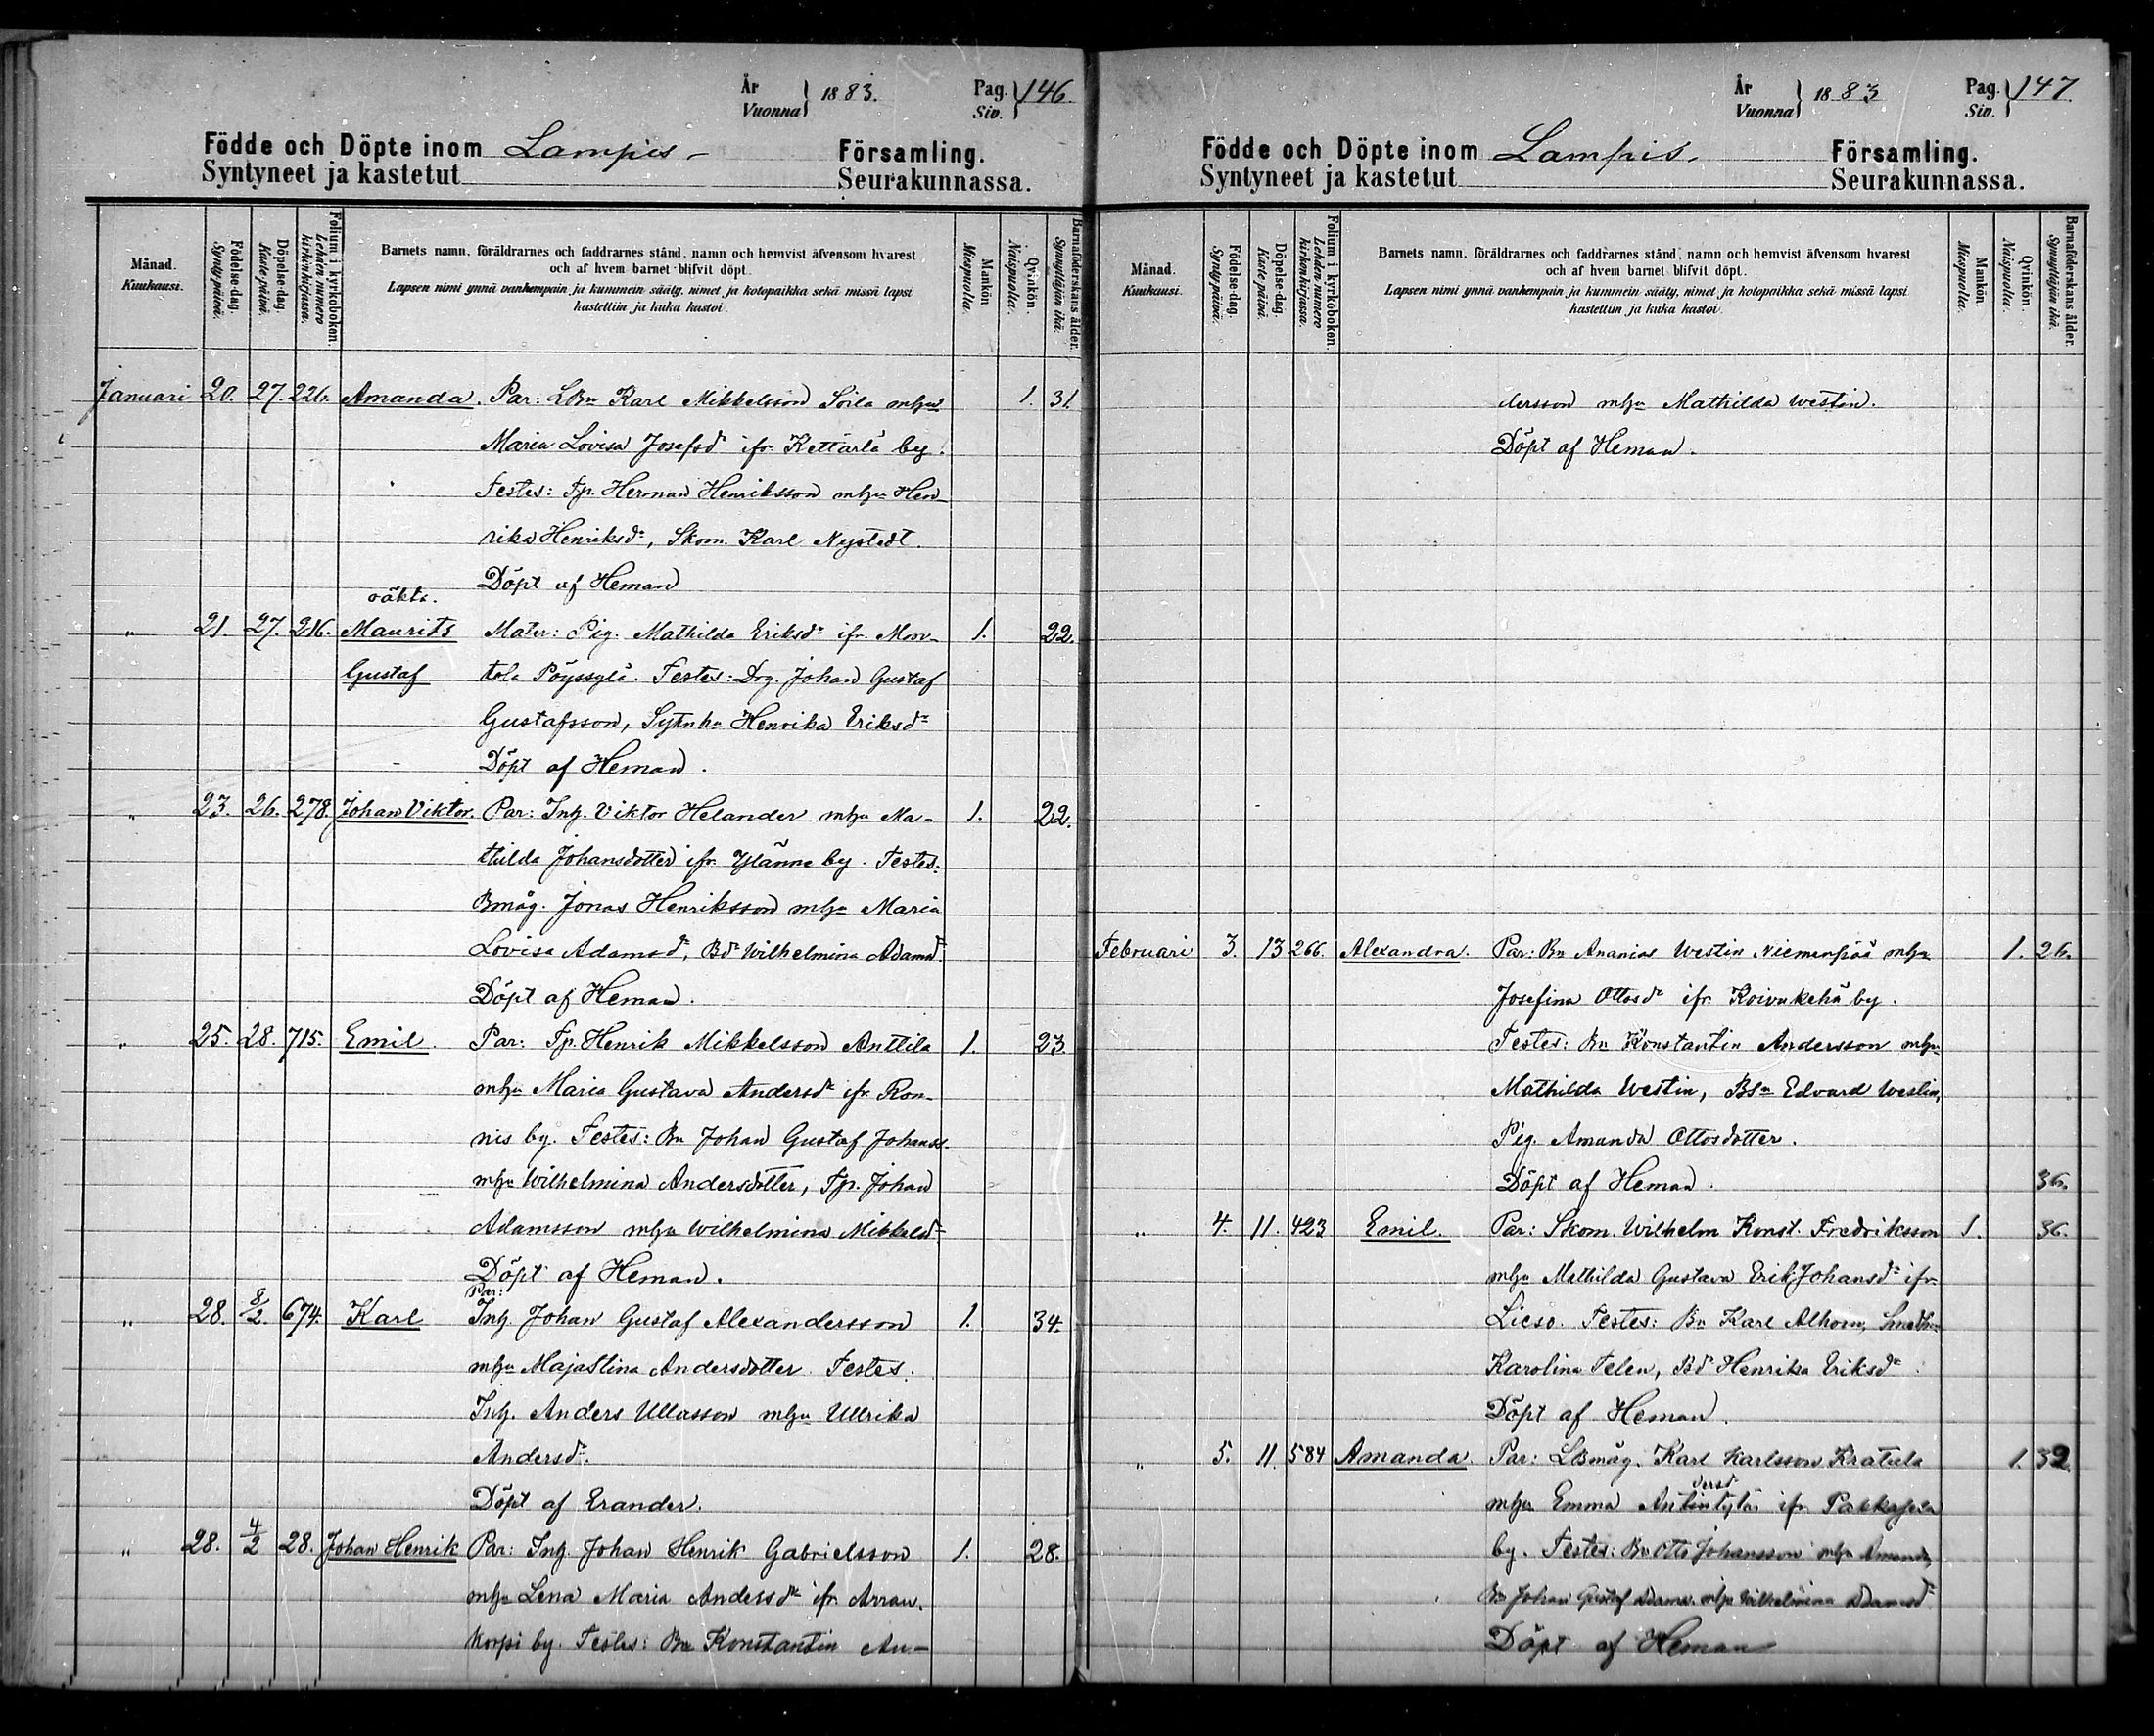 År
Vuonna
1883.
Pag.
Siv.
146.
Födde och Döpte inom Lampis Församling.
Syntyneet ja kastetut Seurakunnassa.
Månad.
Kuukausi.
Födelse-dag.
Syntypäivä.
Döpelse-dag.
Kastepäivä.
Folium i kyrkoboken.
Lehden numero
kirkonkirjassa.
Barnets namn, föräldrarnes och faddrarnes stånd, namn och hemvist äfvensom hvarest
och af hvem barnet blifvit döpt.
Lapsen nimi ynnä vanhempain ja kummein sääty, nimet ja kotopaikka sekä missä lapsi
kastettiin ja kuka kastoi.
Mankön
Miespuolia.
Qvinkön.
Naispuolia.
Barnaföderskans ålder.
Synnyttäjän ikä.
Januari 20. 27. 226. Amanda. Par: LBn Karl Mikkelsson Soila mhu 1. 31.
Maria Lovisa Josefsdr ifr. Kettärlä by.
Testes: Tp. Herman Henriksson mhu Hen-
rika Henriksdr, Skom. Karl Nystedt.
Döpt af Heman
oäkta.
" 21. 27. 216. Maurits Mater: Pig. Mathilda Eriksdr ifr. 1. 22.
Gustaf Testes: Drg. Johan Gustaf
Gustafsson, Henrika Eriksdr
Döpt af Heman.
" 23. 26. 278. Johan Viktor. Par: Inh. Viktor Helander mhu Ma- 1. 22.
thilda Johansdotter ifr. Ylänne by. Testes:
Bmåg. Jonas Henriksson mhu Maria
Lovisa Adamsdr, Bdr Wilhelmina Adamsdr.
Döpt af Heman.
" 25. 28. 715. Emil. Par: Tp. Henrik Mikkelsson Anttila 1. 23.
mhu Maria Gustava Andersdr ifr. Ron-
nis by. Testes: Bn Johan Gustaf Johanss.
mhu Wilhelmina Andersdotter, Tp. Johan
Adamsson mhu Wilhelmina Mikkelsdr
Döpt af Heman.
Par:
" 28. 8/2. 674. Karl Inh. Johan Gustaf Alexandersson 1. 34.
mhu Maja Stina Andersdotter. Testes.
Inh. Anders Ullasson mhu Ullrika
Andersdr.
Döpt af Erander.
" 28. 4/2 28. Johan Henrik Par: Inh. Johan Henrik Gabrielsson 1. 28.
mhu Lena Maria Andersdr ifr. Arran-
korpi by. Testes: Bn Konstantin An-
År
Vuonna
1883
Pag.
Siv.
147.
Födde och Döpte inom Lampis. Församling.
Syntyneet ja kastetut Seurakunnassa.
Månad.
Kuukausi.
Födelse-dag.
Syntypäivä.
Döpelse-dag.
Kastepäivä.
Folium i kyrkoboken.
Lehden numero
kirkonkirjassa.
Barnets namn, föräldrarnes och faddrarnes stånd, namn och hemvist äfvensom hvarest
och af hvem barnet blifvit döpt.
Lapsen nimi ynnä vanhempain ja kummein sääty, nimet ja kotopaikka sekä missä lapsi
kastettiin ja kuka kastoi.
Mankön
Miespuolia.
Qvinkön.
Naispuolia.
Barnaföderskans ålder.
Synnyttäjän ikä.
dersson mhu Mathilda Westin.
Döpt af Heman.
Februari 3. 13 266. Alexandra. Par: Bn Ananias Westin Niemenpää mhu 1. 26.
Josefina Ottosdr ifr. Koivukehä by.
Testes: Bn Konstantin Andersson mhu
Mathilda Westin, Bsn Edvard Westin,
Pig. Amanda Ottosdotter.
Döpt af Heman. 36.
" 4. 11. 423 Emil. Par: Skom. Wilhelm Konst. Fredriksson 1. 36.
mhu Mathilda Gustava Erik Johansdr ifr.
Lieso. Testes: Bn Karl Alhoin,
Karolina Telen, Bdr Henrika Eriksdr.
Döpt af Heman.
" 5. 11. 584 Amanda. Par: LBmåg. Karl Karlsson Kratula 1. 32.
dersdr
mhu Emma ifr. Pakkasela
by. Testes: Bn Otto Johansson mhu Amanda,
Bn Johan Gustaf Adams. mhu Wilhelmina Adamsdr
Döpt af Heman